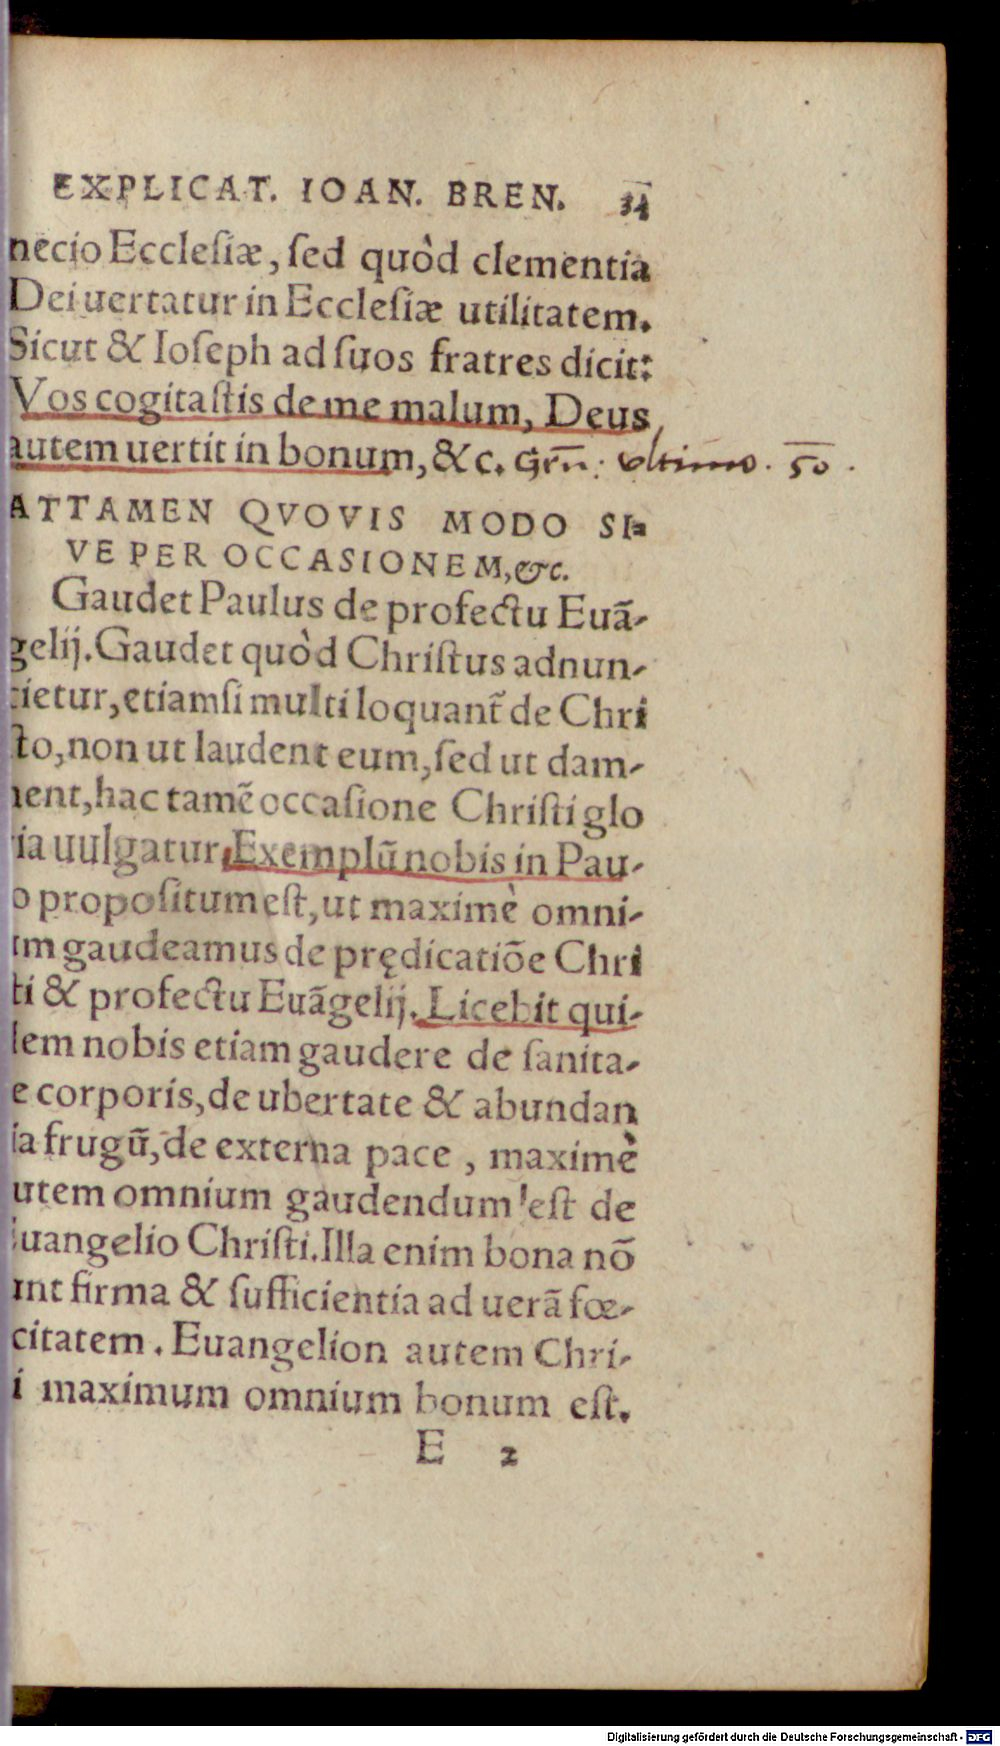 EXPLICAT. IOAN. BREN. 34
necio Ecclesiæ, sed quòd clementia
Dei uertatur in Ecclesiæ utilitatem.
Sicut & Ioseph ad suos fratres dicit:
Vos cogitastis de me malum, Deus
autem uertit in bonum, &c. Gen̄: vltimo. 50.
ATTAMEN QVOVIS MODO SI=
VE PER OCCASIONEM, &c.
Gaudet Paulus de profectu Euā-
gelij. Gaudet quòd Christus adnun-
cietur, etiamsi multi loquant̃ de Chri
sto, non ut laudent eum, sed ut dam-
nent, hac tamē occasione Christi glo
ria uulgatur. Exemplũ nobis in Pau-
o propositum est, ut maximè omni-
um gaudeamus de prędicatiōe Chri
ti & profectu Euāgelij. Licebit qui-
dem nobis etiam gaudere de sanita-
e corporis, de ubertate & abundan
ia frugũ, de externa pace, maximè
utem omnium gaudendum est de
Euangelio Christi. Illa enim bona nō
unt firma & sufficientia ad uerā fœ-
citatem. Euangelion autem Chri-
i maximum omnium bonum est.
E 2
Digitalisierung gefördert durch die Deutsche Forschungsgemeinschaft - DFG